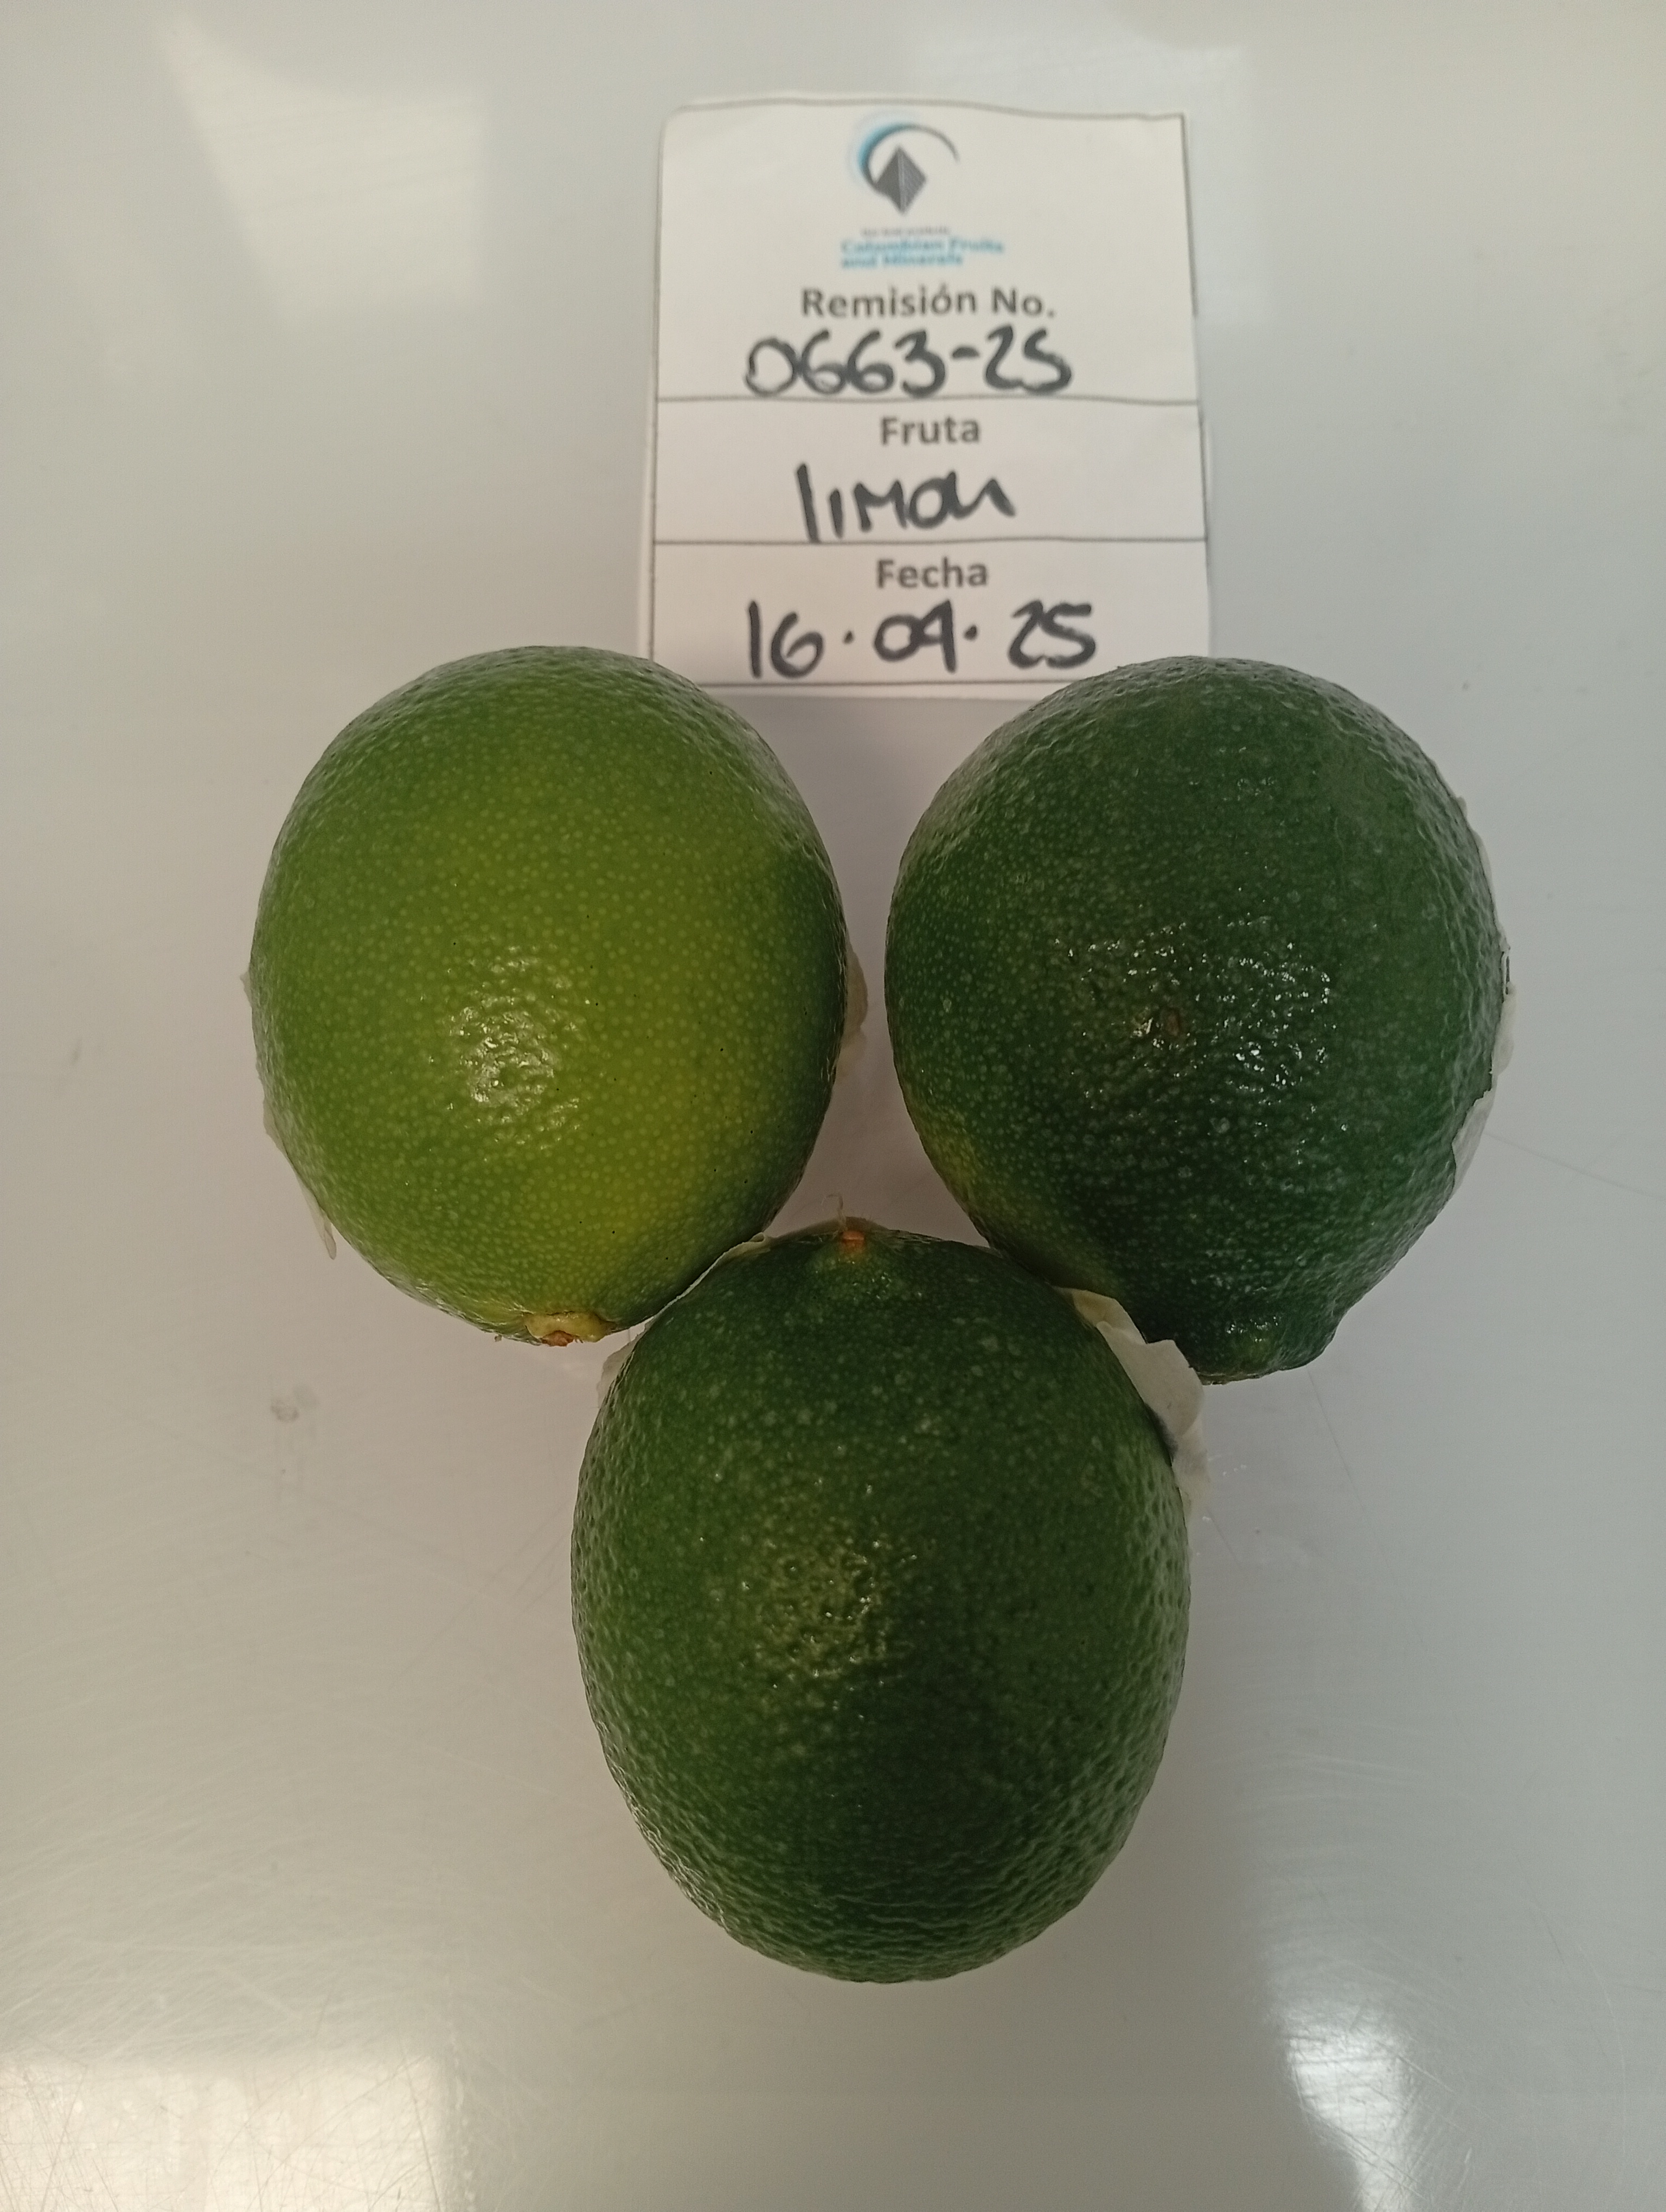 Colombian Fruits
and Minerals
Remisión No.
0663-25
Fruta
limon
Fecha
16.04.25